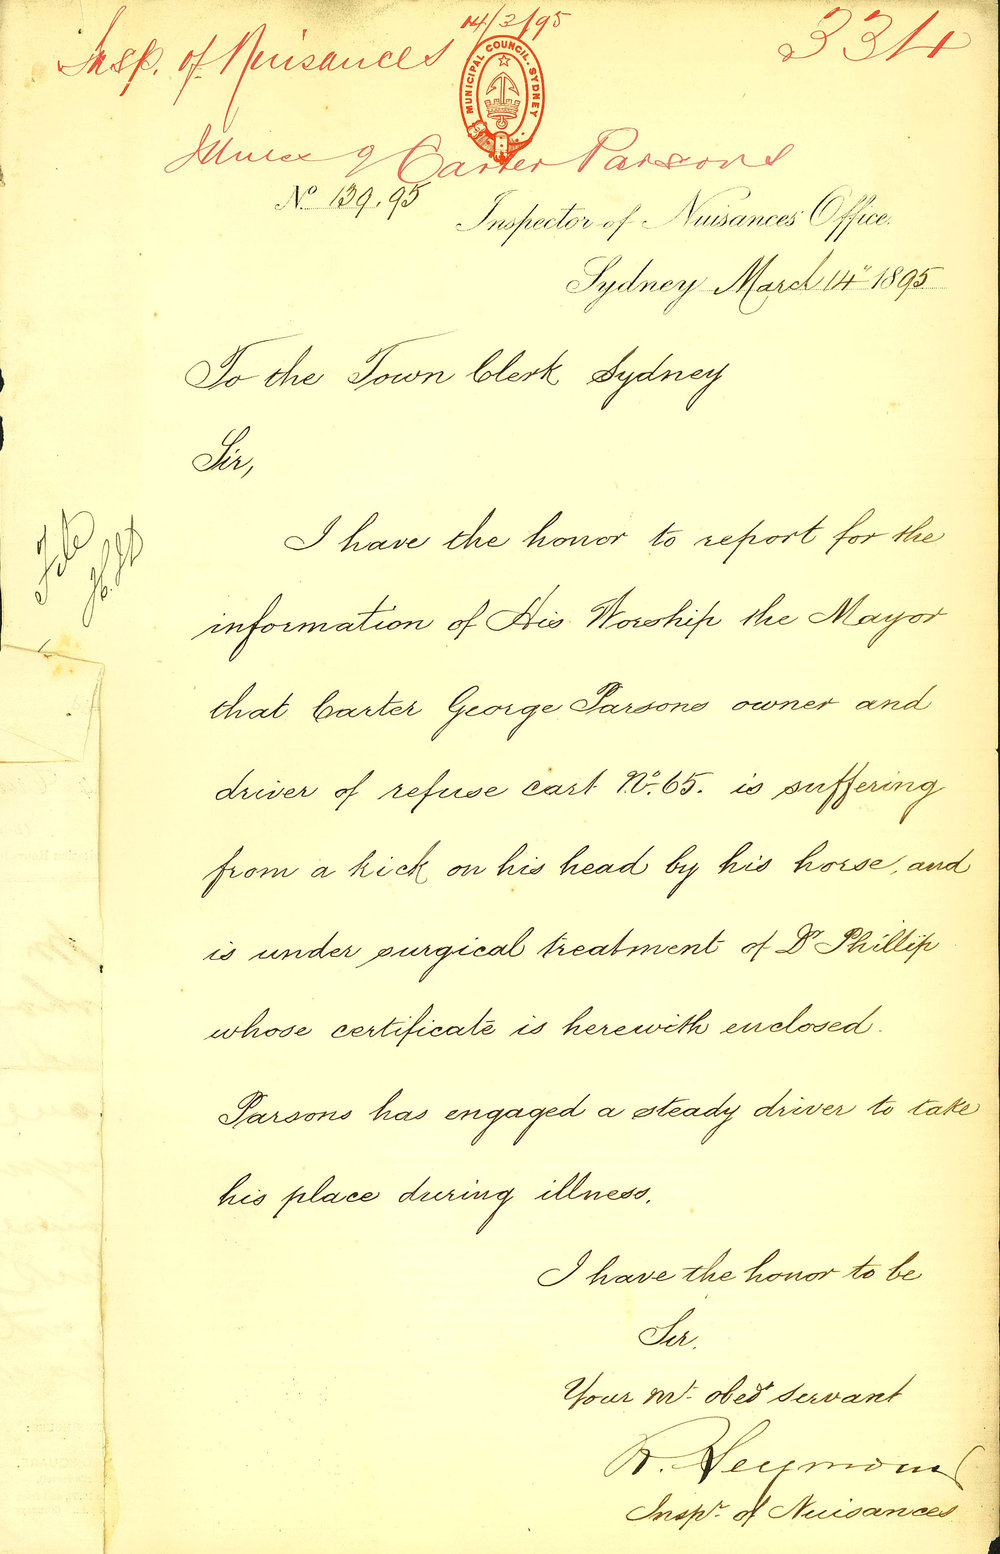 14/3/95
Insp. of Nuisances
334
MUNICIPAL COUNCIL. SYDNEY
Illness of Carter Parsons
No 139.95
Inspector of Nuisances Office.
Sydney March 14" 1895
To the Town Clerk Sydney
Sir,
File
I have the honor to report for the
information of His Worship the Mayor
that Carter George Parsons owner and
driver of refuse cart No. 65. is suffering
from a kick on his head by his horse, and
is under surgical treatment of Dr Phillip
whose certificate is herewith enclosed.
Parsons has engaged a steady driver to take
his place during illness.
I have the honor to be
Sir.
Your mt. obedt servant
R. Seymour
Inspr. of Nuisances